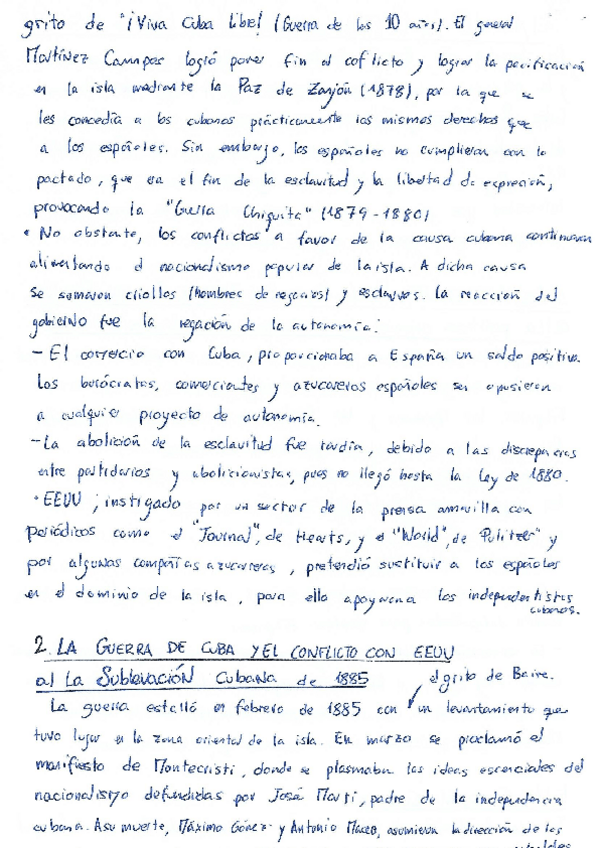 grito de "¡Viva Cuba libre! (Guerra de los 10 años). El general
Martínez Campos logró poner fin al coflicto y lograr la pacificación
en la isla mediante la Paz de Zanjón (1878), por la que se
les concedía a los cubanos prácticamente los mismos derechos que
a los españoles. Sin embargo, los españoles no cumplieron con lo
pactado, que era el fin de la esclavitud y la libertad de expresión,
provocando la "Guerra Chiquita" (1879-1880)
• No obstante, los conflictos a favor de la causa cubana continuaron
alimentando el nacionalismo popular de la isla. A dicha causa
se sumaron criollos (hombres de negocios) y esclavos. La reacción del
gobierno fue la negación de la autonomía:
- El comercio con Cuba, proporcionaba a España un saldo positivo.
Los burócratas, comerciantes y azucareros españoles se opusieron
a cualquier proyecto de autonomía.
- La abolición de la esclavitud fue tardía, debido a las discrepancias
entre partidarios y abolicionistas, pues no llegó hasta la Ley de 1880.
• EEUU, instigado por un sector de la prensa amarilla con
periódicos como el "Journal", de Hearts, y el "World", de Pulitzer" y
por algunas compañías azucareras, pretendió sustituir a los españoles
en el dominio de la isla, para ello apoyaron a los independentistas
cubanos.
2. LA GUERRA DE CUBA Y EL CONFLICTO CON EEUU
a) La Sublevación Cubana de 1885
el grito de Baire.
La guerra estalló en febrero de 1885 con un levantamiento que
tuvo lugar en la zona oriental de la isla. En marzo se proclamó el
manifiesto de Montecristi, donde se plasmaban las ideas esenciales del
nacionalismo defendidas por José Martí, padre de la independencia
cubana. A su muerte, Máximo Gómez y Antonio Maceo, asumieron la dirección de los